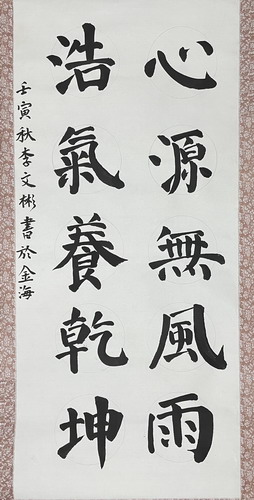 心源無風雨
浩氣養乾坤
壬寅秋李文彬書於金海